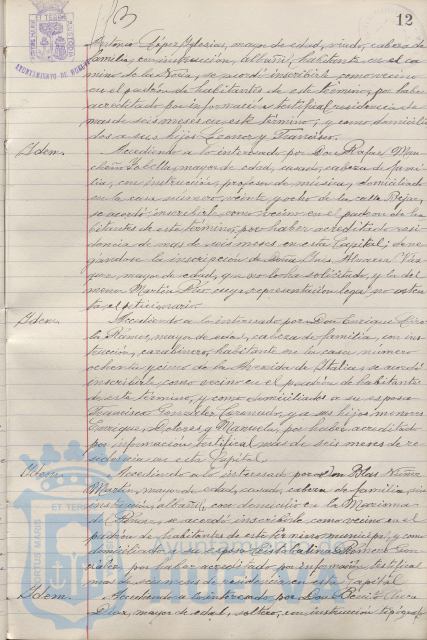 12
Antonio López Iglesias, mayor de edad, viudo, cabeza de
familia, con instrucción, albañil, habitante en el ca
mino de la , se acordó inscribirle como vecino
en el padrón de habitantes de este término, por haber
acreditado por información testifical residencia de
mas de seis meses en este término; y como domicilia
dos a sus hijos Leonor y Francisco.
Idem. Accediendo a lo interesado por Don Rafael
mayor de edad, casado, cabeza de fami
lia, con instrucción, profesor de música, domiciliado
en la casa número veinte y ocho de la calle Béjar,
se acordó inscribirle como vecino en el padrón de ha
bitantes de este término, por haber acreditado resi
dencia de mas de seis meses en esta Capital; dene
gándose la inscripción de Doña Inés Alvarez
mayor de edad, que no lo ha solicitado, y la del
menor Martín cuya representación legal no osten
ta el peticionario.
Idem. Accediendo a lo interesado por Don Enrique
mayor de edad, cabeza de familia, con ins
trucción, carabinero, habitante en la casa número
ochenta y cinco de la Avenida de Italia, se acordó
inscribirle como vecino en el padrón de habitantes
de este término, y como domiciliados a su esposa
Francisca González y a sus hijos menores
Enrique, Dolores y Manuela, por haber acreditado
por información testifical mas de seis meses de re
sidencia en esta Capital.
Idem. Accediendo a lo interesado por Don Blas Núñez
Martín, mayor de edad, casado, cabeza de familia, sin
instrucción, albañil, con domicilio en la
de se acordó inscribirle como vecino en el
padrón de habitantes de este término municipal, y como
domiciliada a su esposa Robustiana Romero
por haber acreditado por información testifical
mas de seis meses de residencia en esta Capital
Idem. Accediendo a lo interesado por Don
Diaz, mayor de edad, soltero, con instrucción, tipógrafo